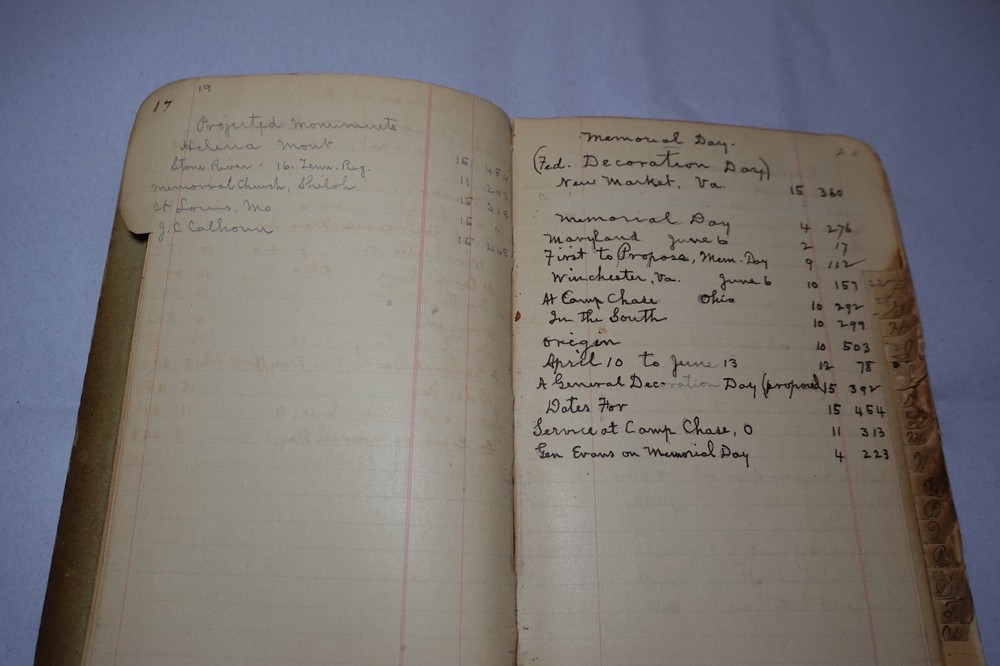 17 19
Projected Monuments
Helena Mont
Stone River - 16. Tenn. Reg. 15 454
Memorial Church, Shiloh 11 203
St Louis, Mo 15 319
J.C Calhoun 15 "
15 245
20
Memorial Day.
(Fed. Decoration Day)
New Market, Va 15 360
Memorial Day 4 276
Maryland June 6 2 17
First to Propose, Mem. Day 9 112
Winchester, Va. June 6 10 157
At Camp Chase Ohio 10 292
In the South 10 299
Origin 10 503
April 10 to June 13 12 78
A General Decoration Day (proposed) 15 392
Dates For 15 454
Service at Camp Chase, O 11 313
Gen Evans on Memorial Day 4 223